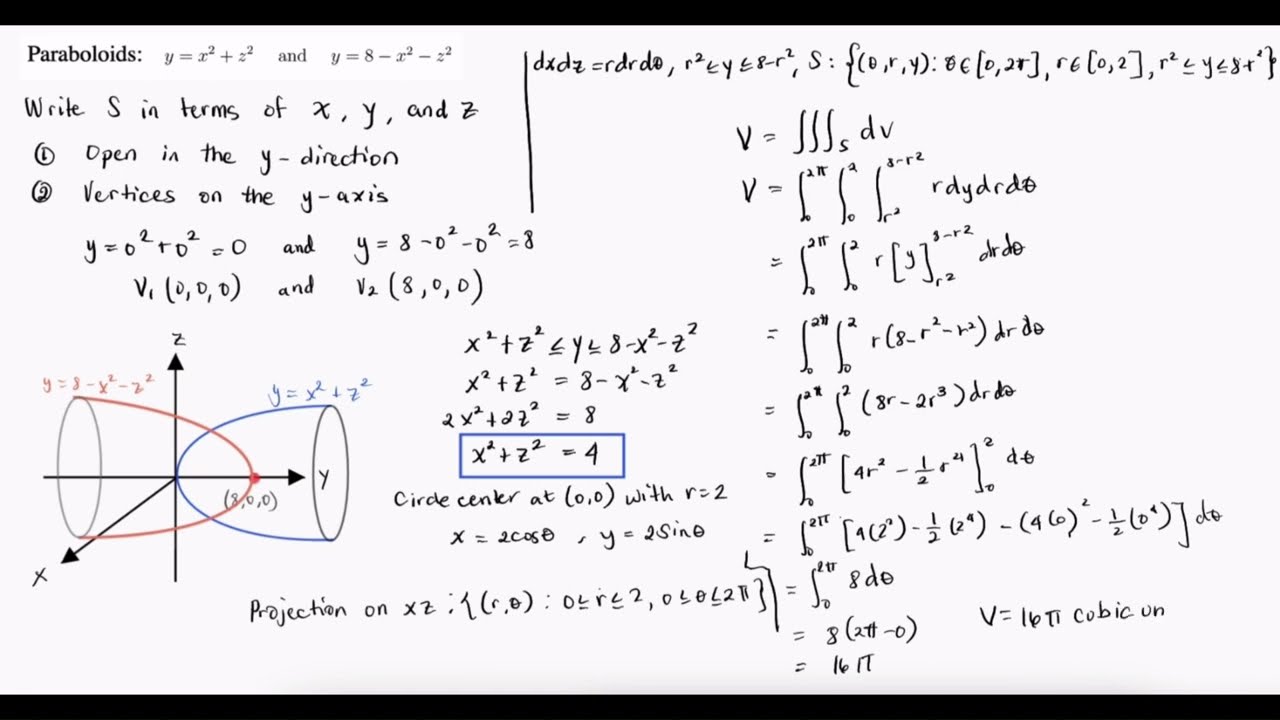 Paraboloids: y = x² + z² and y = 8 − x² − z²
Write S in terms of x, y, and z
① Open in the y-direction
② Vertices on the y-axis
y = 0² + 0² = 0 and y = 8 − 0² − 0² = 8
V₁ (0,0,0) and V₂ (8,0,0)
z
y = 8 − x² − z²
y = x² + z²
y
(8,0,0)
x
x² + z² ≤ y ≤ 8 − x² − z²
x² + z² = 8 − x² − z²
2x² + 2z² = 8
x² + z² = 4
Circle center at (0,0) with r = 2
x = 2cosθ , y = 2sinθ
Projection on xz : {(r,θ) : 0 ≤ r ≤ 2, 0 ≤ θ ≤ 2π}
dxdz = rdrdθ, r² ≤ y ≤ 8−r², S : {(θ,r,y): θ ∈ [0,2π], r ∈ [0,2], r² ≤ y ≤ 8+r²}
V = ∭_S dv
V = ∫₀^2π ∫₀^2 ∫_r²^8−r² rdydrdθ
= ∫₀^2π ∫₀^2 r[y]_r²^8−r² drdθ
= ∫₀^2π ∫₀^2 r(8 − r² − r²) dr dθ
= ∫₀^2π ∫₀^2 (8r − 2r³) dr dθ
= ∫₀^2π [4r² − 1/2 r⁴]₀^2 dθ
= ∫₀^2π [4(2²) − 1/2 (2⁴) − (4(0)² − 1/2 (0⁴)] dθ
= ∫₀^2π 8dθ
= 8(2π − 0)
= 16π
V = 16π cubic un